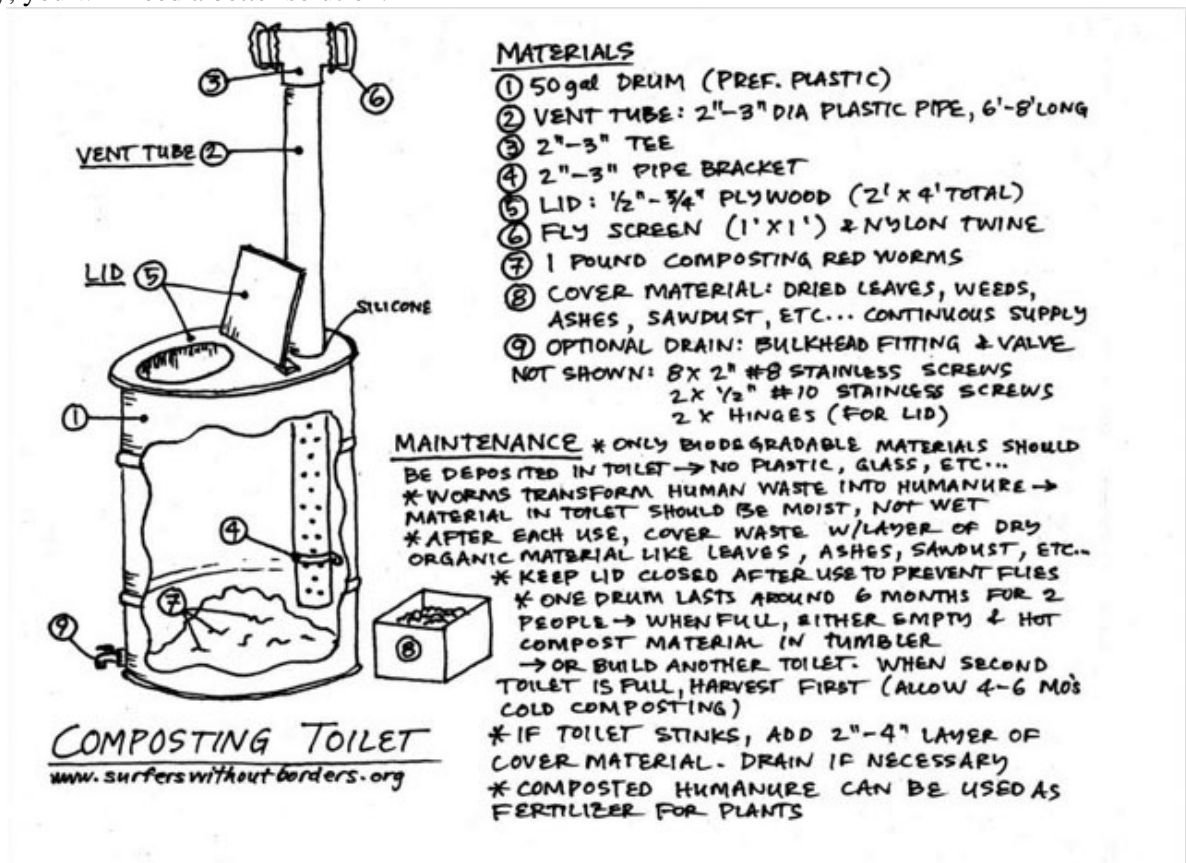 you will need a better solution.
VENT TUBE ②
③
⑥
LID ⑤
SILICONE
①
④
⑦
⑨
⑧
COMPOSTING TOILET
www.surferswithoutborders.org
MATERIALS
① 50 gal DRUM (PREF. PLASTIC)
② VENT TUBE: 2"-3" DIA PLASTIC PIPE, 6'-8' LONG
③ 2"-3" TEE
④ 2"-3" PIPE BRACKET
⑤ LID: 1/2"-3/4" PLYWOOD (2' X 4' TOTAL)
⑥ FLY SCREEN (1'X1') & NYLON TWINE
⑦ 1 POUND COMPOSTING RED WORMS
⑧ COVER MATERIAL: DRIED LEAVES, WEEDS,
ASHES, SAWDUST, ETC... CONTINUOUS SUPPLY
⑨ OPTIONAL DRAIN: BULKHEAD FITTING & VALVE
NOT SHOWN: 8 X 2" #8 STAINLESS SCREWS
2 X 1/2" #10 STAINLESS SCREWS
2 X HINGES (FOR LID)
MAINTENANCE * ONLY BIODEGRADABLE MATERIALS SHOULD
BE DEPOSITED IN TOILET → NO PLASTIC, GLASS, ETC...
* WORMS TRANSFORM HUMAN WASTE INTO HUMANURE →
MATERIAL IN TOILET SHOULD BE MOIST, NOT WET
* AFTER EACH USE, COVER WASTE W/LAYER OF DRY
ORGANIC MATERIAL LIKE LEAVES, ASHES, SAWDUST, ETC...
* KEEP LID CLOSED AFTER USE TO PREVENT FLIES
* ONE DRUM LASTS AROUND 6 MONTHS FOR 2
PEOPLE → WHEN FULL, EITHER EMPTY & HOT
COMPOST MATERIAL IN TUMBLER
→ OR BUILD ANOTHER TOILET. WHEN SECOND
TOILET IS FULL, HARVEST FIRST (ALLOW 4-6 MO'S
COLD COMPOSTING)
* IF TOILET STINKS, ADD 2"-4" LAYER OF
COVER MATERIAL. DRAIN IF NECESSARY
* COMPOSTED HUMANURE CAN BE USED AS
FERTILIZER FOR PLANTS